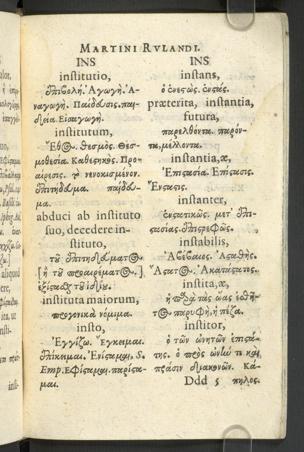 MARTINI RVLANDI.
INS
institutio,
Ἐπιβολή. Ἀγωγή. Ἀ-
ναγωγή. Παίδευσις. παι-
δεία. Εἰσαγωγή.
institutum,
Ἔθος. Θεσμὸς. Θεσ-
μοθεσία. Καθεστηκός. Προ-
αίρεσις. τὸ νενοσμισμένον.
Ἐπιτήδευμα. παίδευ-
μα.
abduci ab instituto
suo, decedere in-
stituto,
instituta maiorum,
πατρικὰ νόμιμα.
insto,
Ἐγγίζω. Ἔγκειμαι.
Ἐπίκειμαι. Ἐνίσταμαι, S.
Emp. Ἐφίσταμαι. παρίστα-
μαι.
INS
instans,
ὁ ἐνεστὼς. ἐνστάς.
præterita, instantia,
futura,
παρελθόντα. παρόν-
τα, μέλλοντα.
instantia, æ,
Ἐπιστασία. Ἐπίστασις.
Ἔνστασις.
instanter,
ἐνστατικῶς. μετ' ἐπι-
στασίας. ἐπιστρεφῶς.
instabilis,
Ἀβέβαιος. Ἀσταθής.
Ἄστατος. Ἀκατάστατος.
instita, æ,
τος παρυφή. ἡ πέζα.
institor,
ὁ τῶν ὠνητῶν ἐπιστά-
της. ὁ πρὸς ὠνὴν τε καὶ
πρᾶσιν διακονῶν. Κά-
Ddd 5 πηλος.